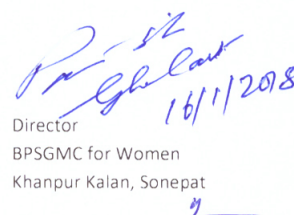 16/1/2018
Director
BPSGMC for Women
Khanpur Kalan, Sonepat